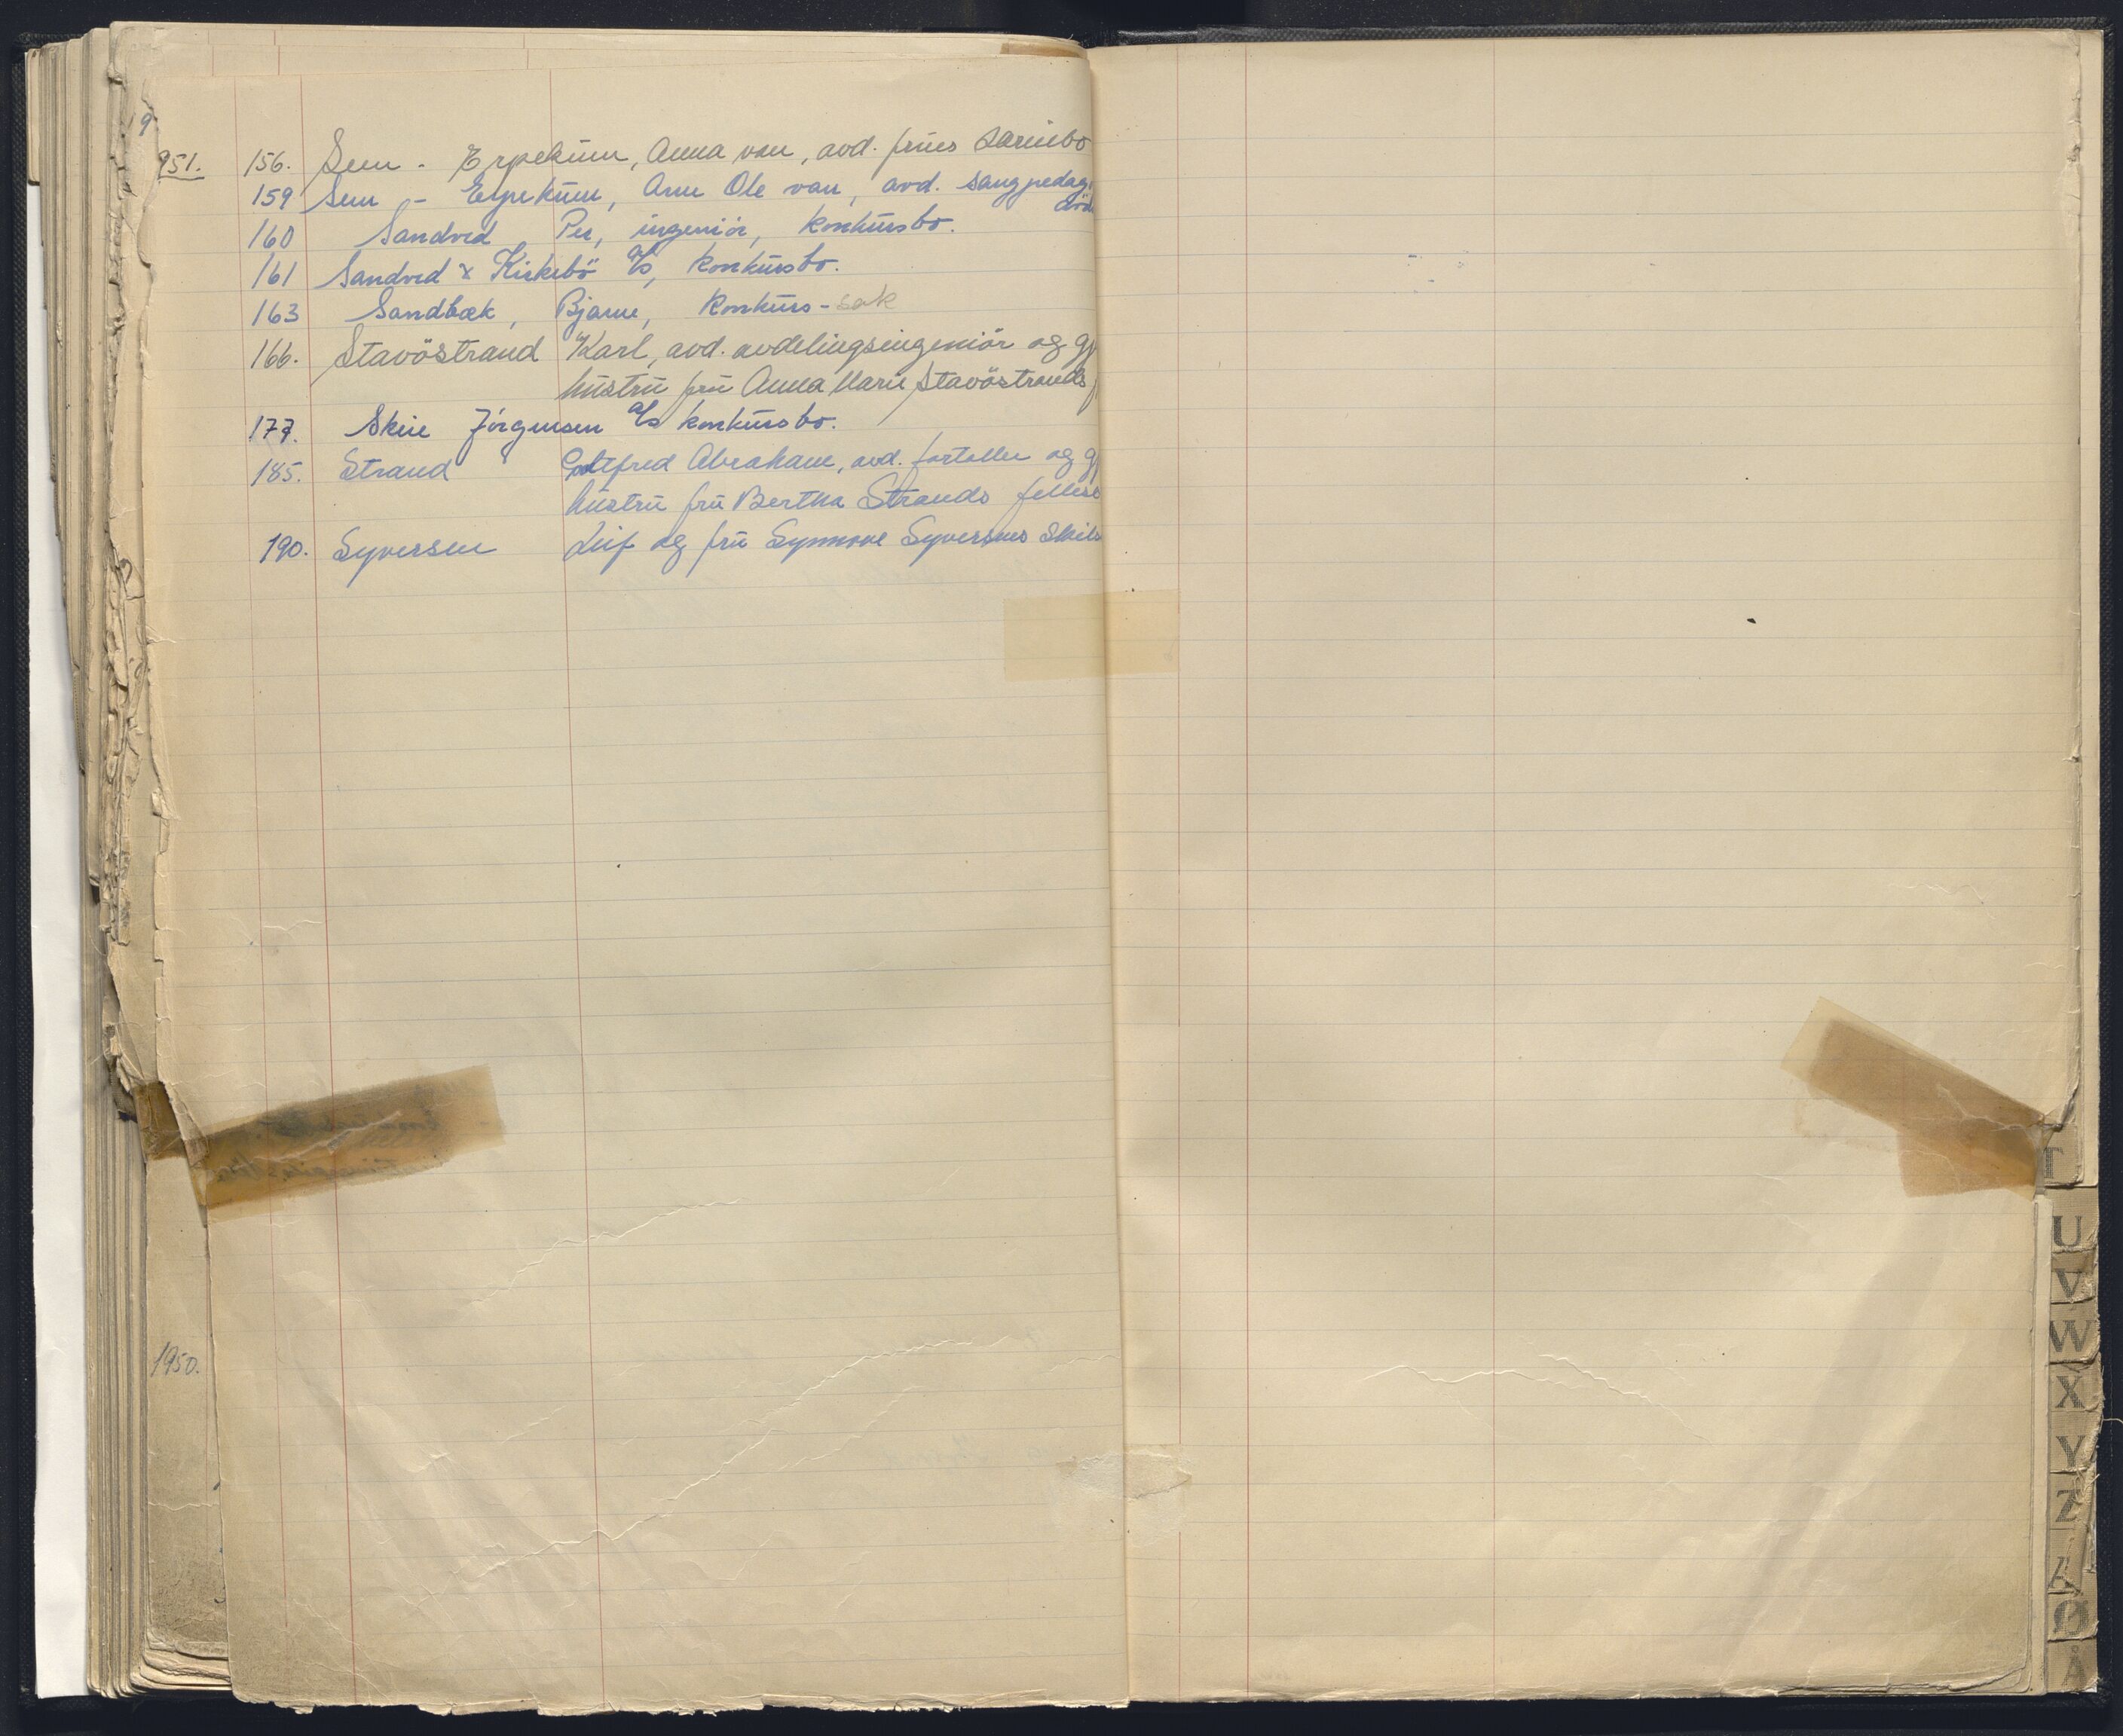 19
951. 156. Sem - Erpekum, Anna van, avd. frues særeiebo
159 Sem - Erpekum, Ann Ole van, avd. sangpedag.
døds
160 Sandved Per, ingeniör, konkursbo.
161 Sandved & Kirkebö A/S, konkursbo.
163 Sandbæk, Bjarne, konkurs-sak
166. Stavöstrand Karl, avd. avdelingsingeniör og gj
hustru fru Anna Marie Stavöstrands f
177. Skeie Jörgensen A/S konkursbo.
185. Strand Gotfred Abraham, avd. fortoller og gj
hustru fru Bertha Strands felles
190. Syversen Leif og fru Synnöve Syversens Skils
1950.
T
U
V
W
X
Y
Z
Æ
Ø
Å